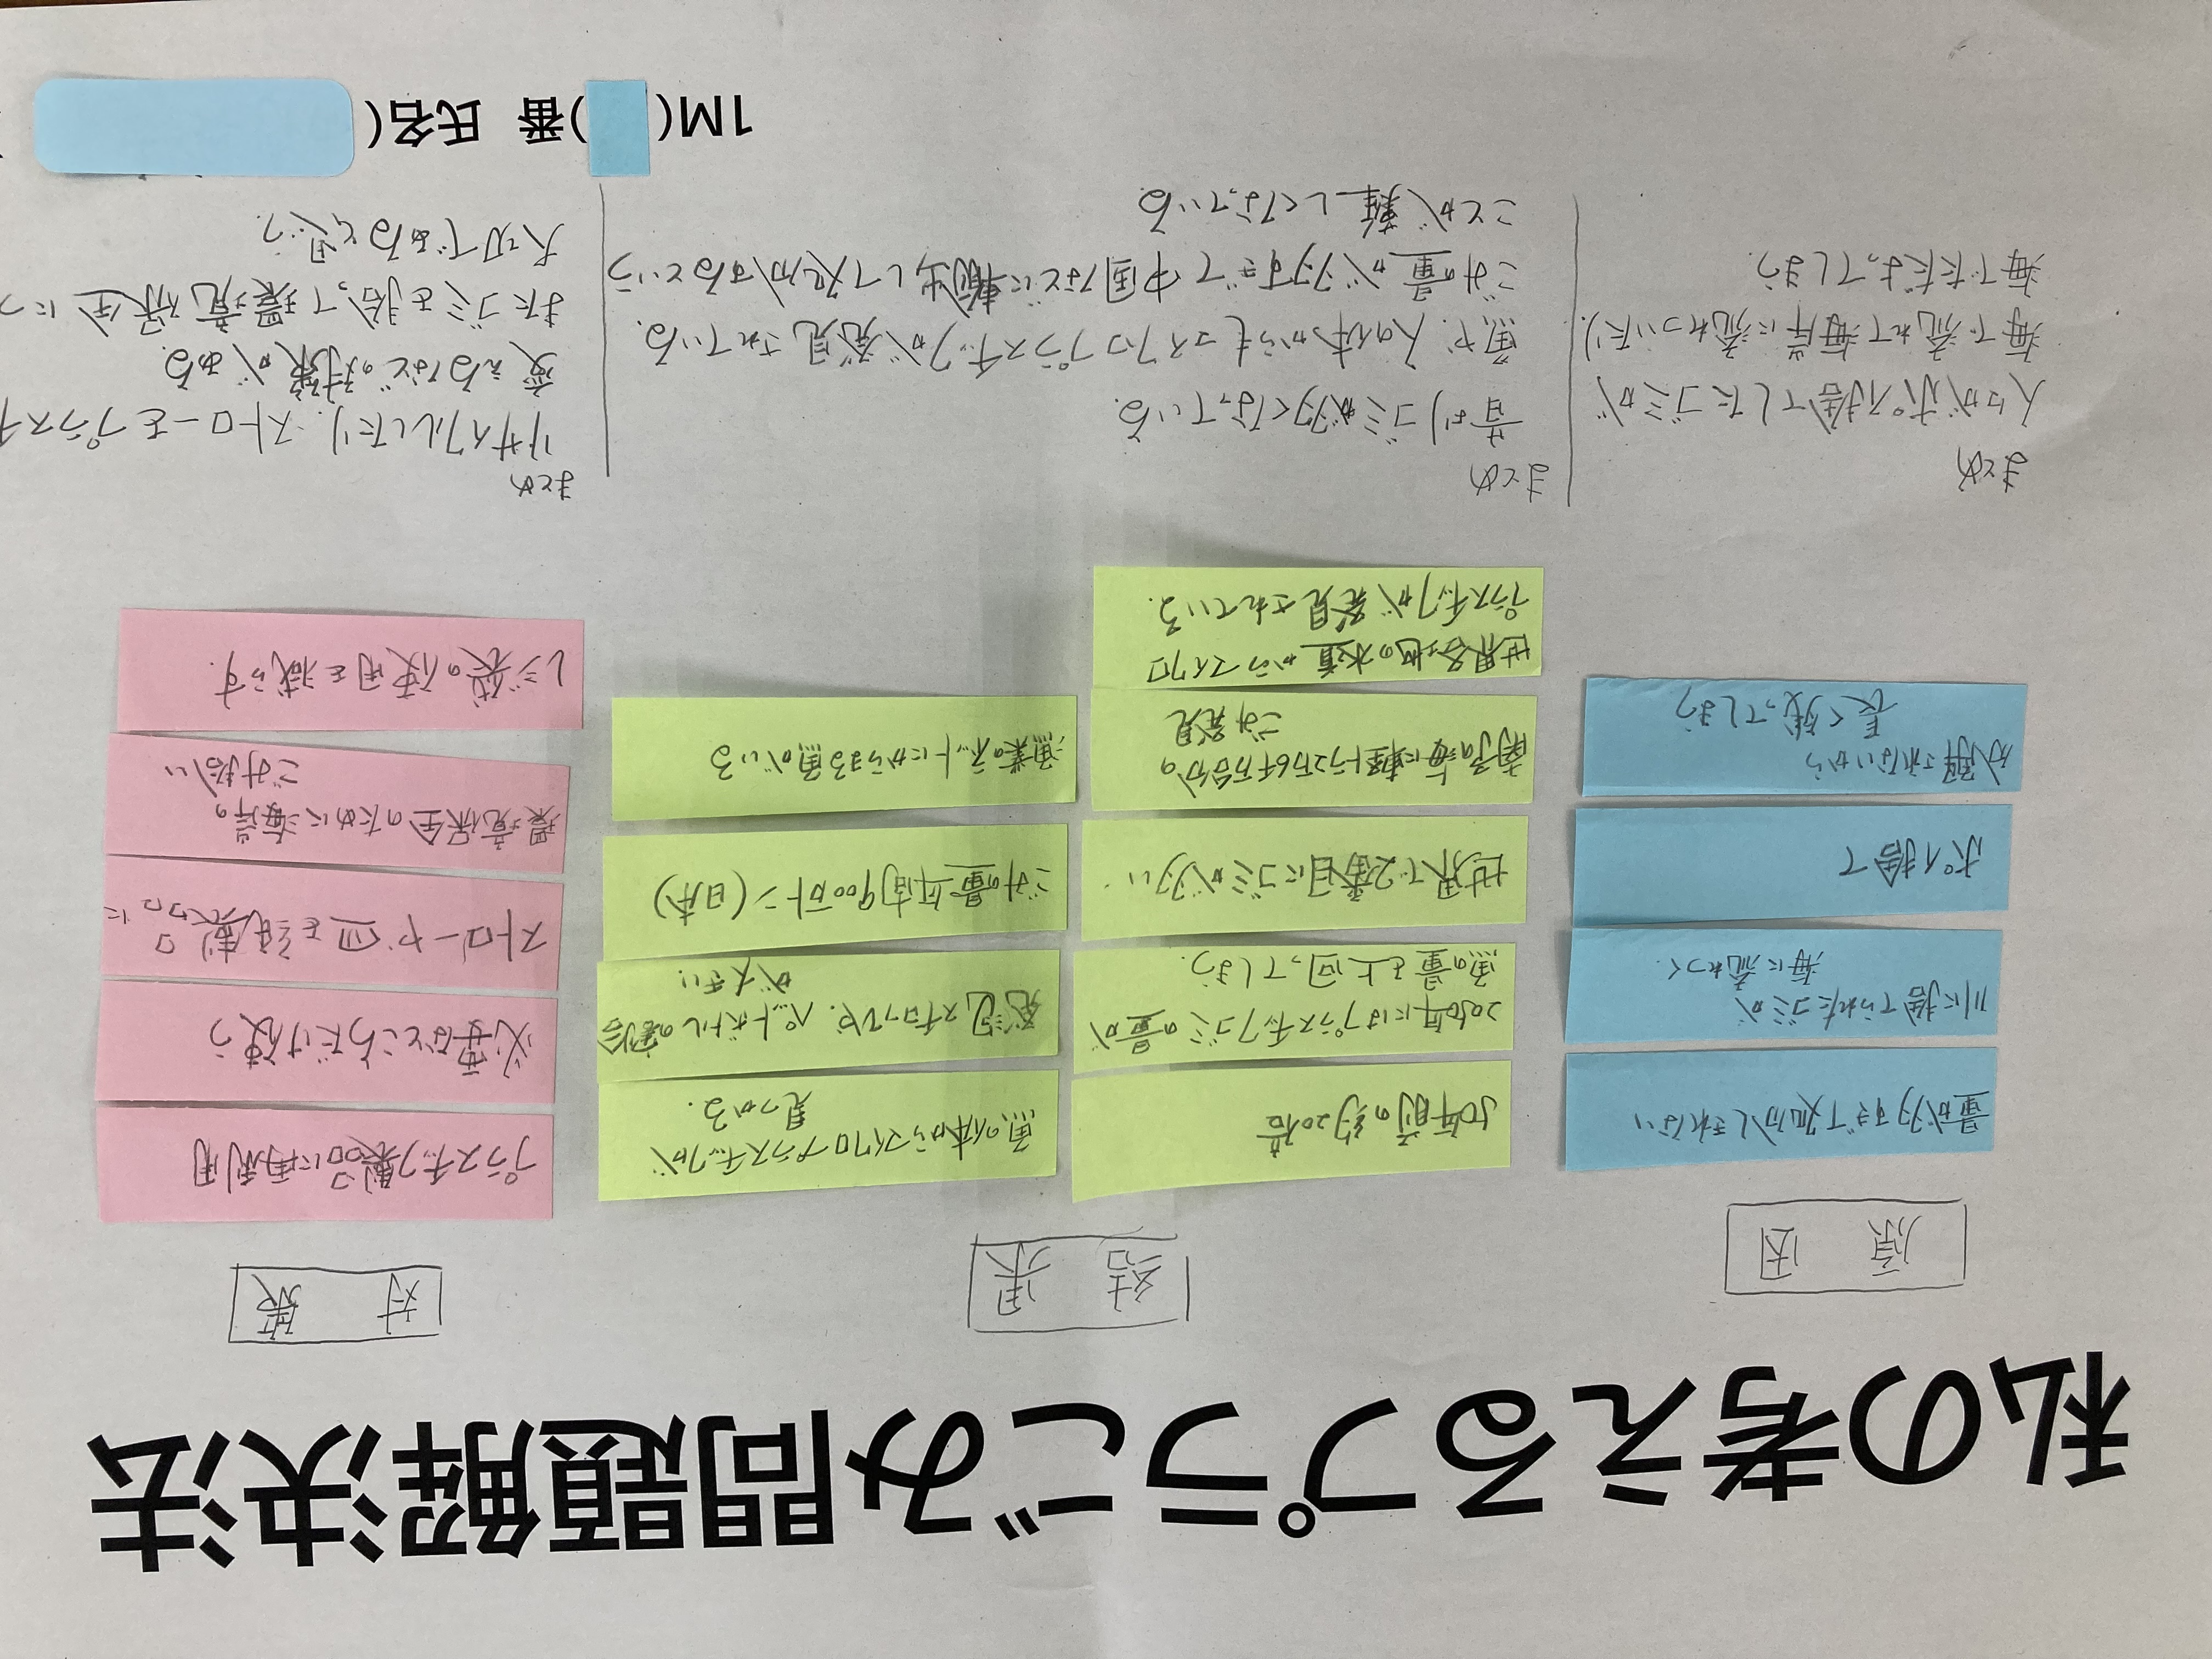 私の考えるプラごみ問題解決法
原因
量が多すぎて処分しきれない
川に捨てられたゴミが
海に流れつく.
ポイ捨て
分解されないから
長く残ってしまう
まとめ
人々がポイ捨てしたゴミが
海で流れて海岸に流れついたり.
海でただよってしまう.
結果
50年前の約20倍
2050年にはプラスチックゴミの量が
魚の量を上回ってしまう.
世界で2番目にゴミが多い.
南予の海に軽トラ2万6千台分の
ごみ発見
世界各地の水道からマイクロ
プラスチックが発見されている.
魚の体からマイクロプラスチックが
見つかる.
発泡スチロールや.ペットボトルの割合
が大きい
ごみの量年間900万トン(日本)
漁業のネットにからまる魚がいる
まとめ
昔よりゴミが多くなっている.
魚や.人の体からもマイクロプラスチックが発見されている.
ごみの量が多すぎて中国などに輸出して処分するという
ことが難しくなっている.
対策
プラスチック製品に再利用
必要なところだけ使う
ストローや皿を紙製品に
環境保全のために海岸の
ごみ拾い
レジ袋の使用を減らす.
まとめ
リサイクルしたり.ストローをプラスチ
変えるなどの対策がある.
またゴミを拾って環境保全につ
大切であると思う.
1M( )番 氏名(